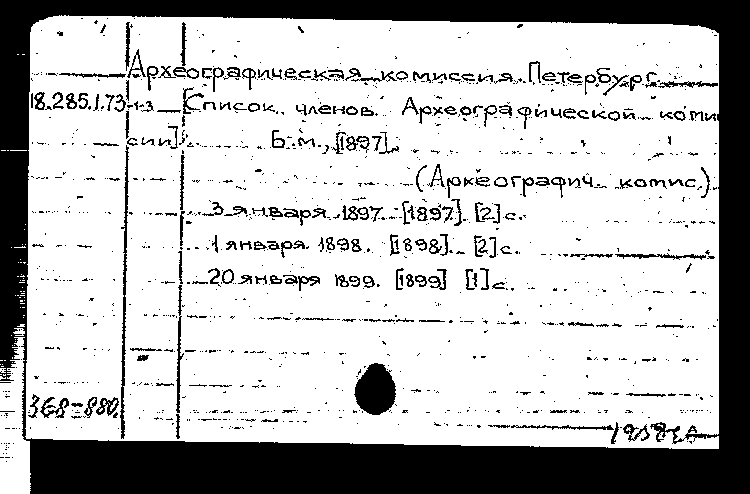 Археографическая комиссия. Петербург.
18.285.1.73 1-3 [Список членов Археографической коми
сии] Б.м., [1897].
(Археографич. комис.)
3 января 1897. [1897]. [2] с.
1 января 1898. [1898]. [2] с.
20 января 1899. [1899] [1] с.
368-880.